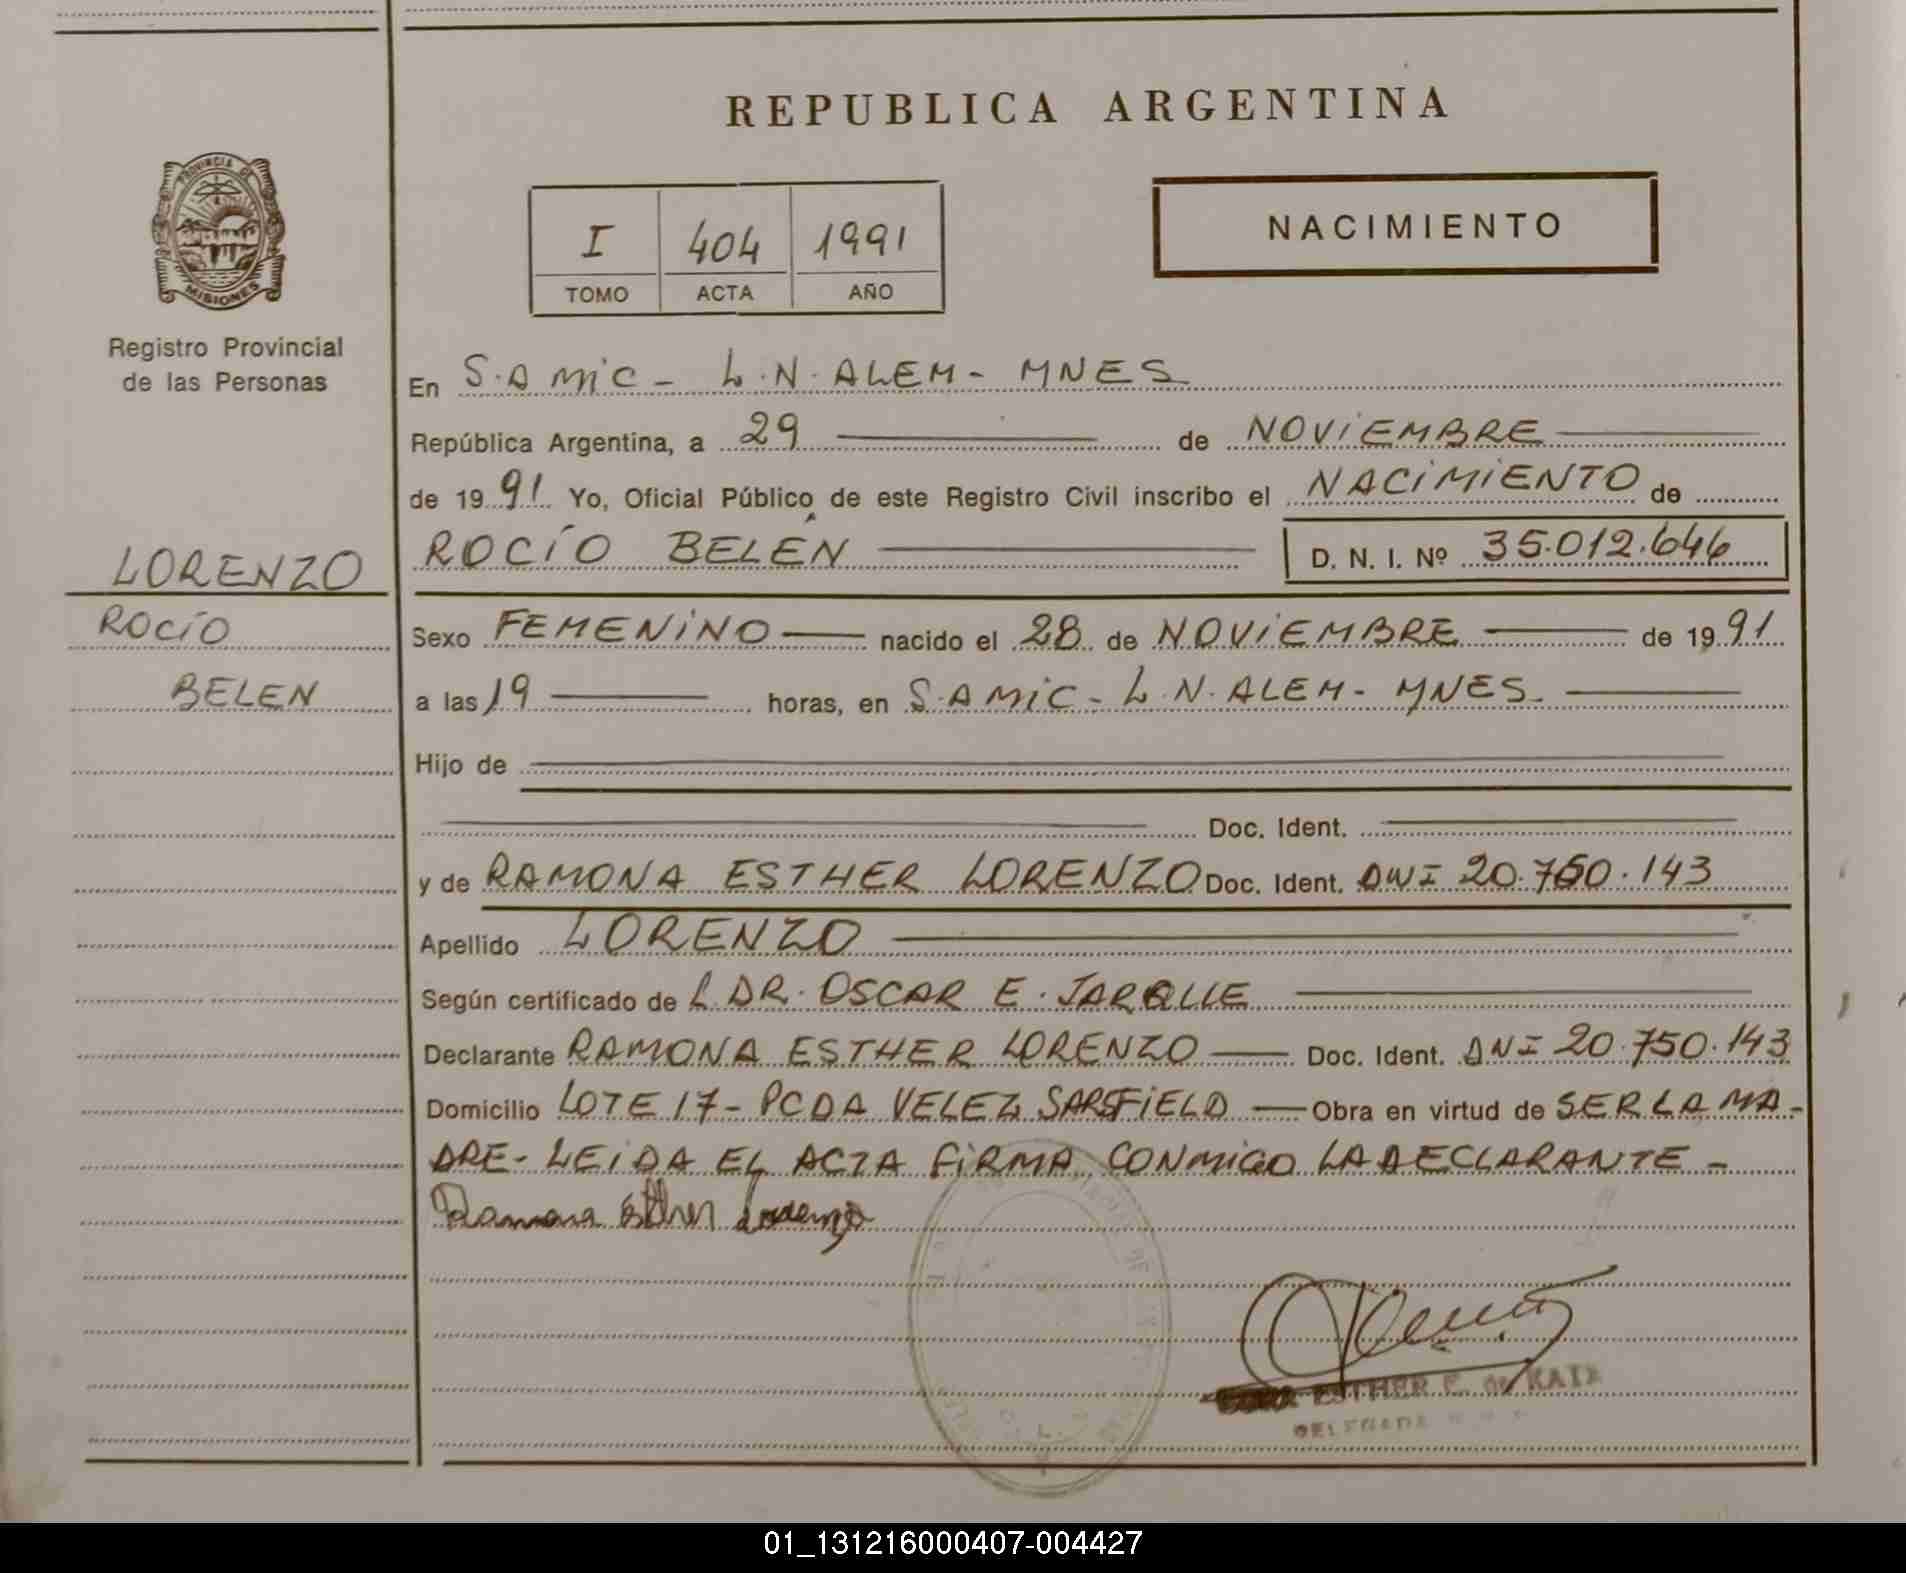 REPUBLICA ARGENTINA
PROVINCIA DE
MISIONES
Registro Provincial
de las Personas
I 404 1991
TOMO ACTA AÑO
NACIMIENTO
En S.AMIC - L.N.ALEM - MNES
República Argentina, a 29 de NOVIEMBRE
de 1991 Yo, Oficial Público de este Registro Civil inscribo el NACIMIENTO de
ROCÍO BELÉN D. N. I. Nº 35.012.646
LORENZO
ROCÍO
BELEN
Sexo FEMENINO nacido el 28 de NOVIEMBRE de 1991
a las 19 horas, en S.AMIC - L.N.ALEM - MNES.
Hijo de
Doc. Ident.
y de RAMONA ESTHER LORENZO Doc. Ident. DNI 20.750.143
Apellido LORENZO
Según certificado de L.DR. OSCAR E. JARQUE
Declarante RAMONA ESTHER LORENZO Doc. Ident. DNI 20.750.143
Domicilio LOTE 17 - PCDA VELEZ SARSFIELD Obra en virtud de SER LA MA-
DRE - LEIDA EL ACTA FIRMA CONMIGO LA DECLARANTE -
Ramona Esther Lorenzo
ESTHER E. de KATZ
DELEGADA
01_131216000407-004427